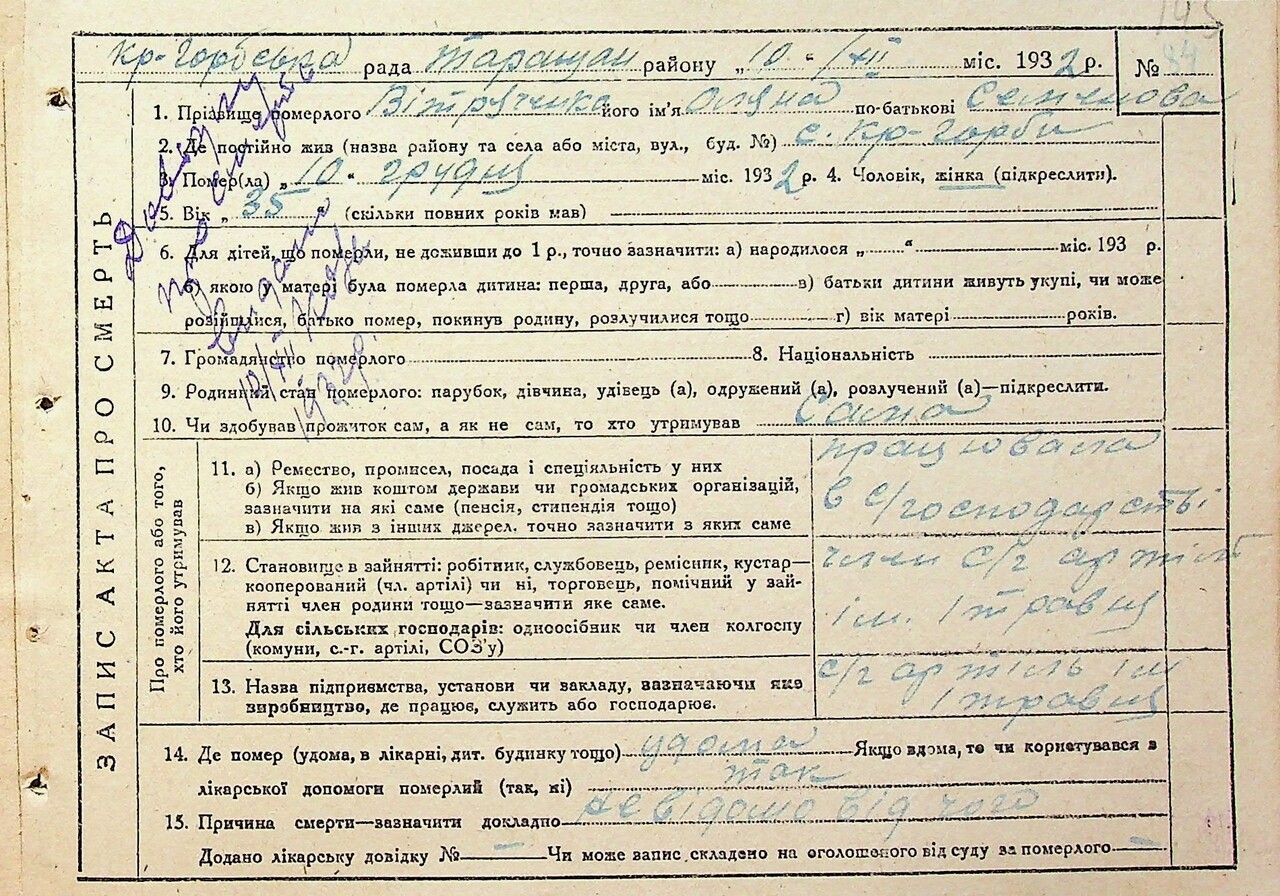 145
Кр-Горбська рада Таращан району „10 “ /XII міс. 1932 р. № 84
1. Прізвище померлого Вітручика його ім'я Оляна по-батькові Семенова
2. Де постійно жив (назва району та села або міста, вул., буд. №) с. Кр-Горби
3. Помер(ла) „ 10 “ грудня міс. 1932 р. 4. Чоловік, жінка (підкреслити).
5. Вік „ 35 “ (скільки повних років мав)
6. Для дітей, що померли, не доживши до 1 р., точно зазначити: а) народилося „ “ міс. 193 р.
б) якою у матері була померла дитина: перша, друга, або в) батьки дитини живуть укупі, чи може
розійшлися, батько помер, покинув родину, розлучилися тощо г) вік матері років.
7. Громадянство померлого 8. Національність
9. Родинний стан померлого: парубок, дівчина, удівець (а), одружений (а), розлучений (а)—підкреслити.
10. Чи здобував прожиток сам, а як не сам, то хто утримував Сама
ЗАПИС АКТА ПРО СМЕРТЬ
Про померлого або того,
хто його утримував
11. а) Ремество, промисел, посада і спеціяльність у них
б) Якщо жив коштом держави чи громадських організацій,
зазначити на які саме (пенсія, стипендія тощо)
в) Якщо жив з інших джерел. точно зазначити з яких саме
працювала
в с/господарстві
12. Становище в зайнятті: робітник, службовець, ремісник, кустар—
кооперований (чл. артілі) чи ні, торговець, помічний у зай-
нятті член родини тощо—зазначити яке саме.
Для сільських господарів: одноосібник чи член колгоспу
(комуни, с.-г. артілі, СОЗ'у)
член с/г артілі
ім. 1 травня
13. Назва підприємства, установи чи закладу, зазначаючи яке
виробництво, де працює, служить або господарює.
с/г артіль ім
1 травня
14. Де помер (удома, в лікарні, дит. будинку тощо) удома Якщо вдома, то чи користувався в
лікарської допомоги померлий (так, ні) так
15. Причина смерти—зазначити докладно невідомо від чого
Додано лікарську довідку № — Чи може запис складено на оголошеного від суду за померлого —
Довідку
про смерть
видано
12/XII
1932р.